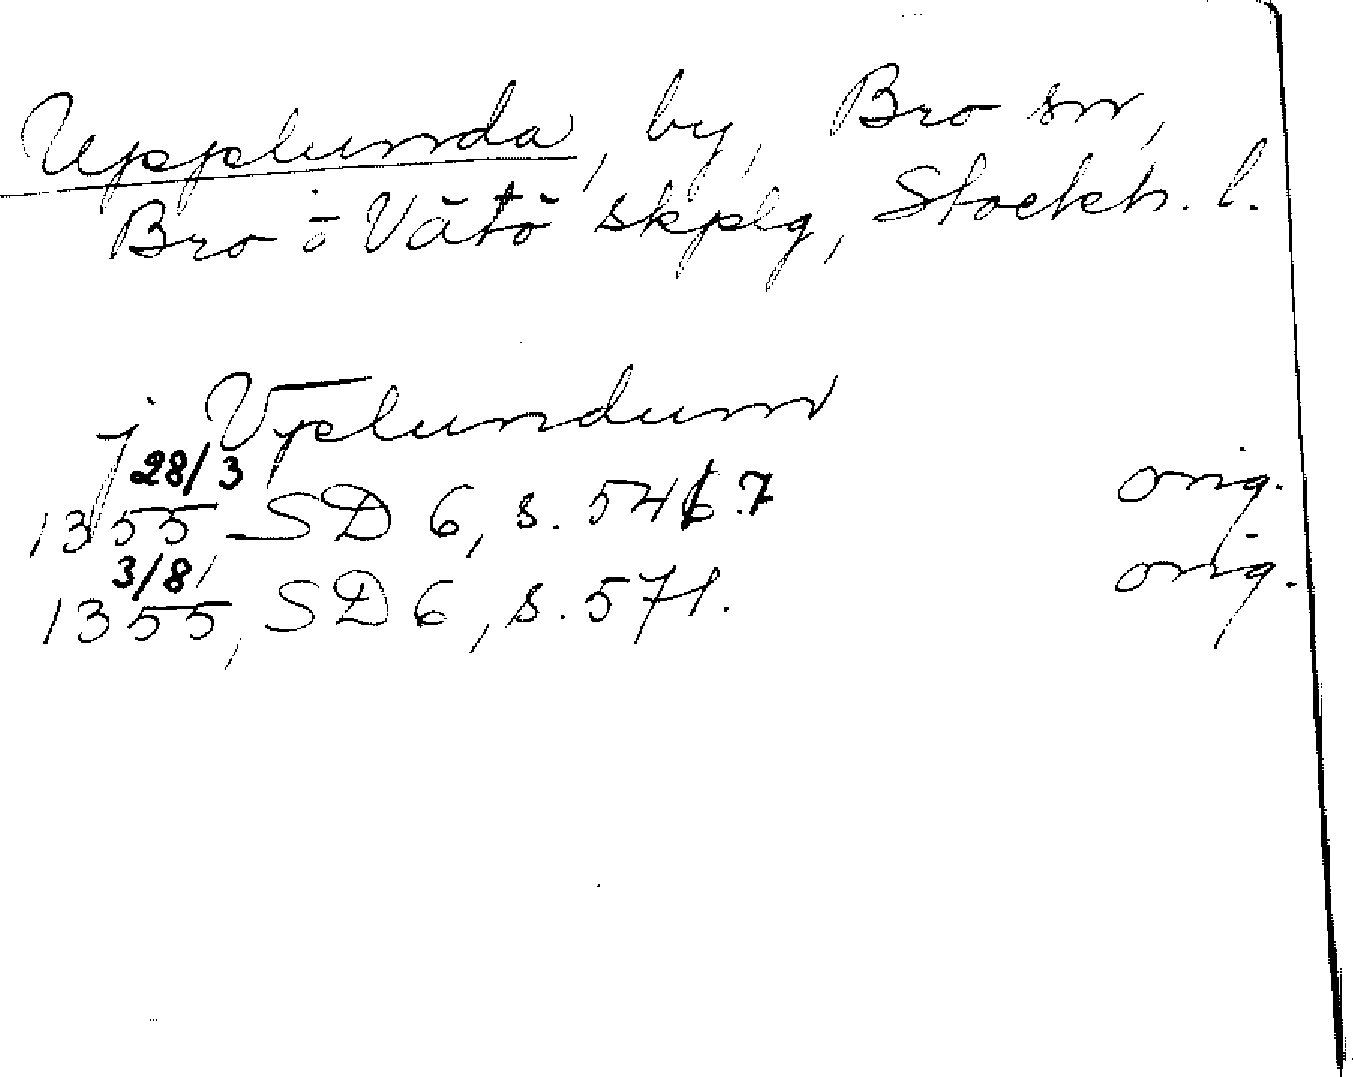 Upplunda, by, Bro sn,
Bro o Vätö skplg, Stockh. l.
j Vplundum
28/3
1355, SD 6, s. 547 orig.
3/8
1355, SD 6, s. 571. orig.